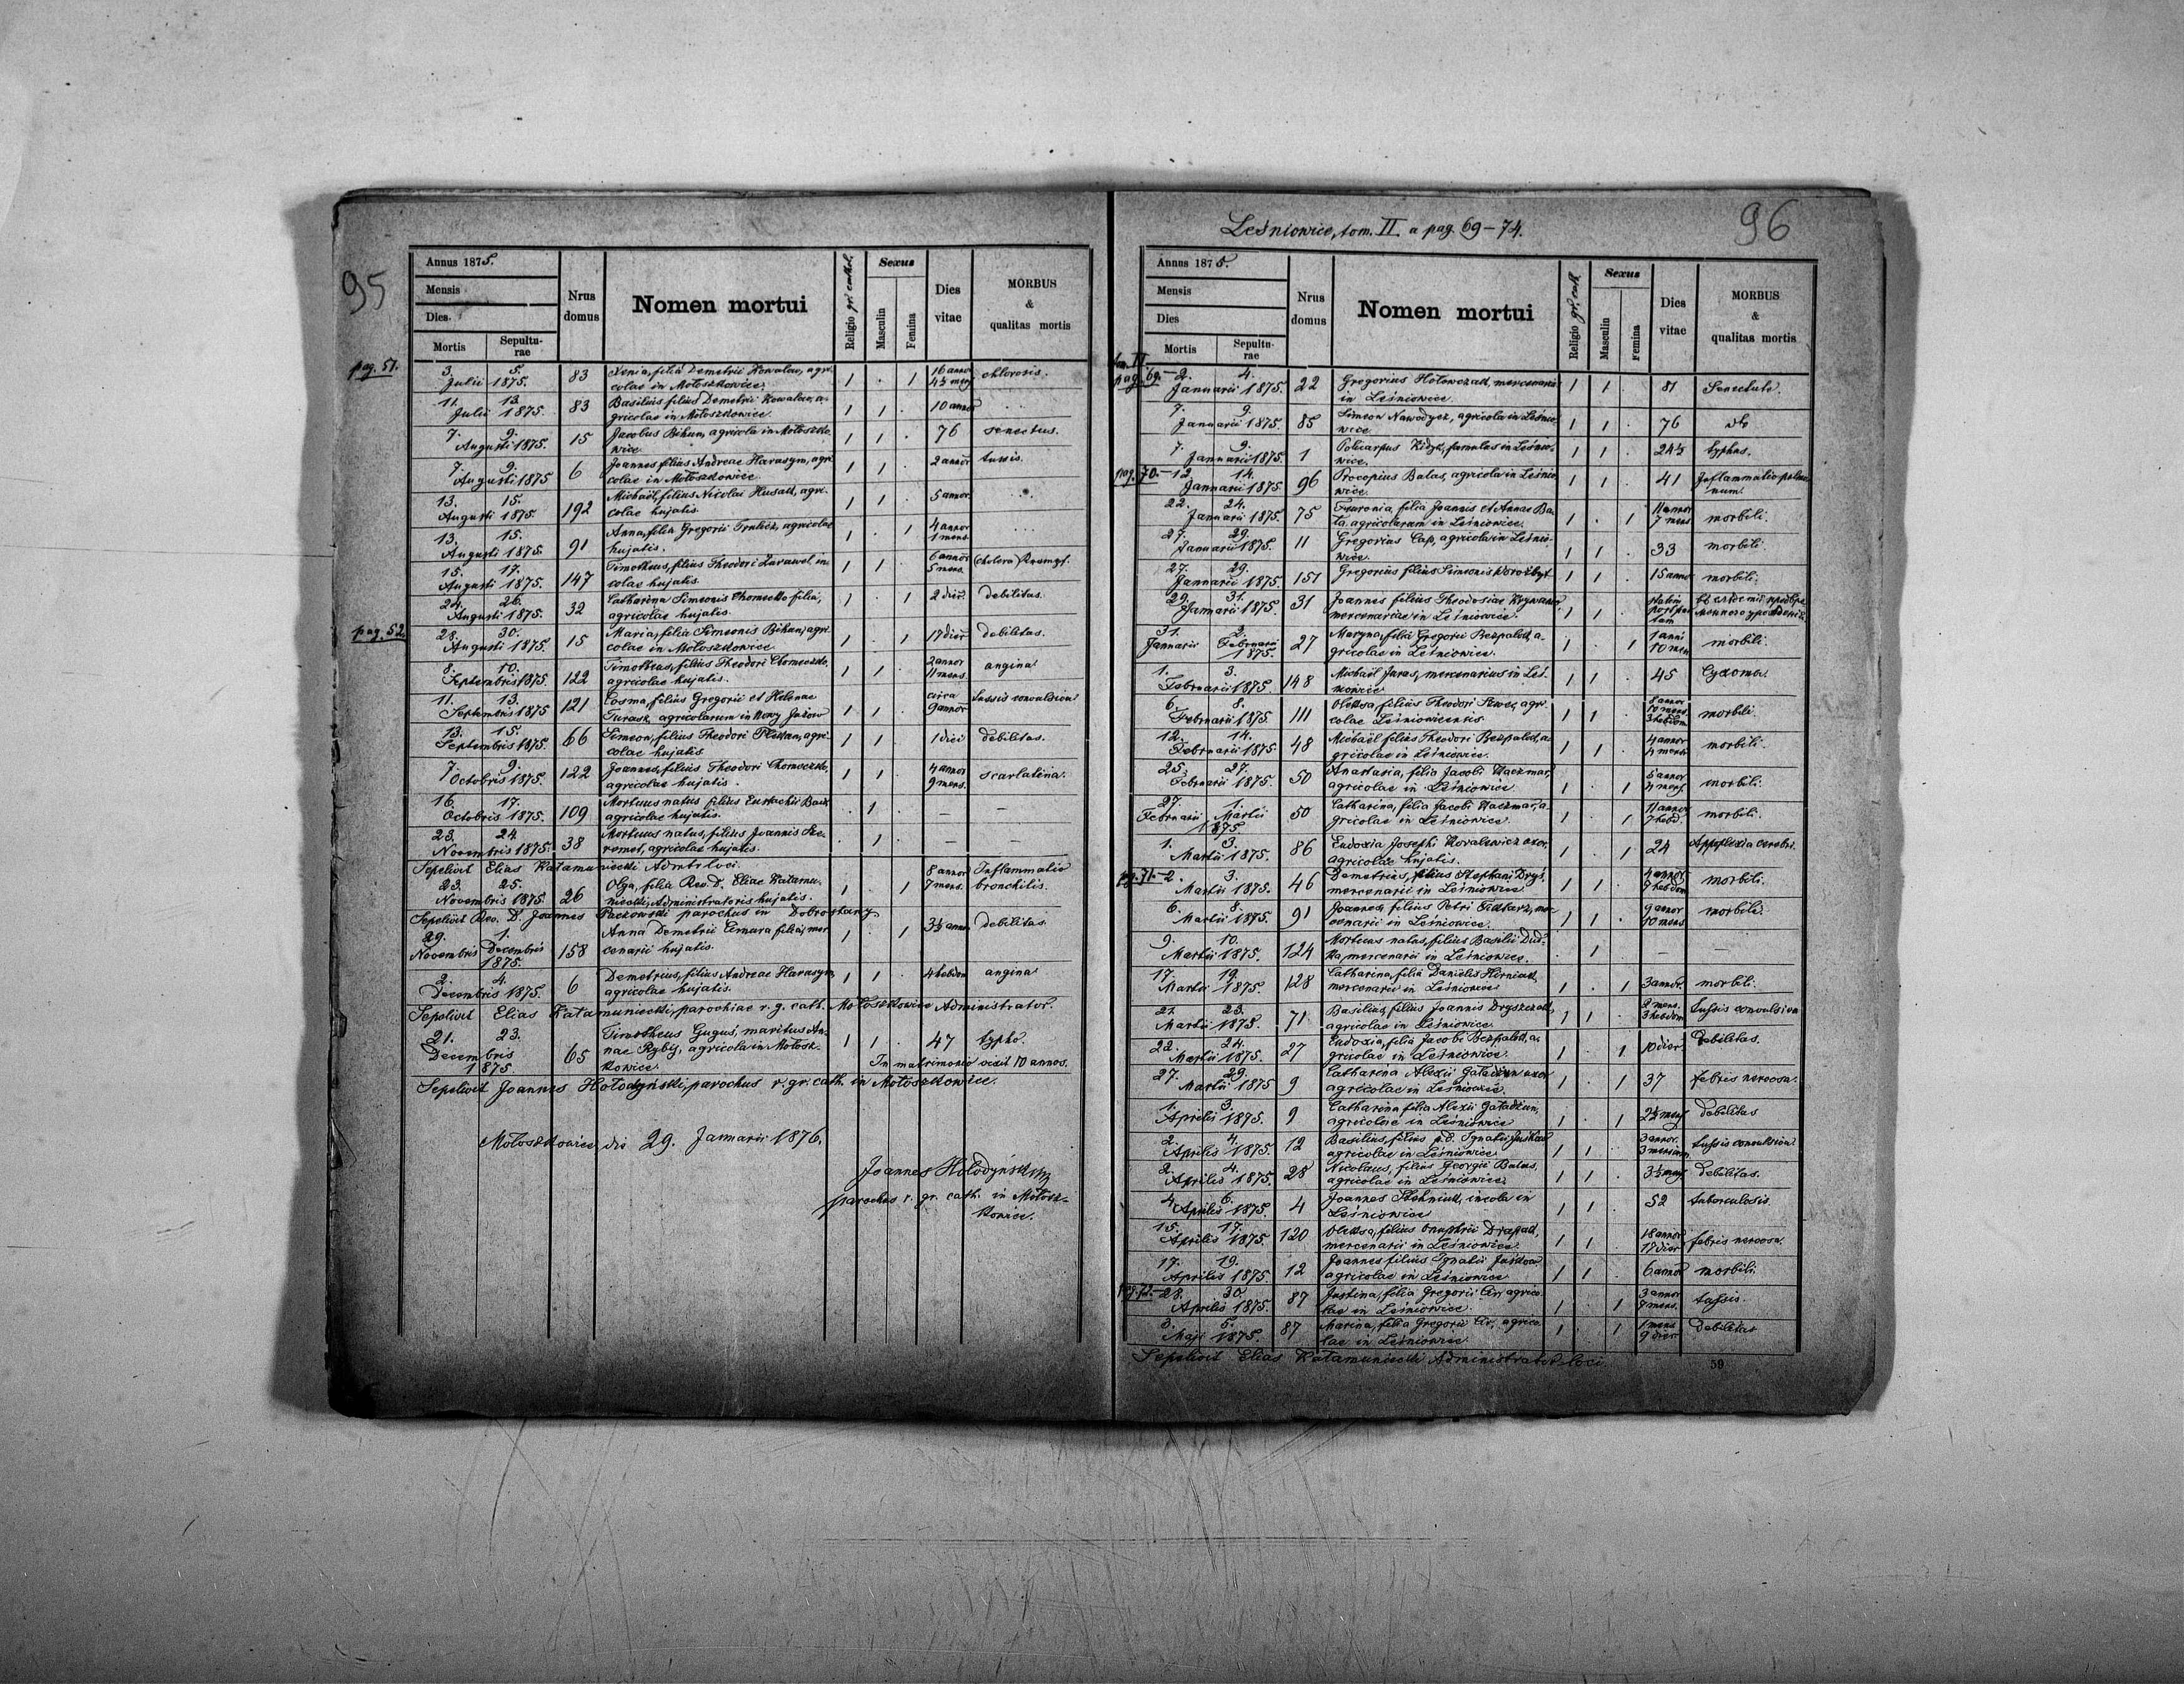 95
Annus 1875.
Mensis
Dies
Mortis
Sepulturae
Nrus domus
Nomen mortui
Religio gr. cathol.
Sexus
Masculin
Femina
Dies vitae
MORBUS & qualitas mortis
pag. 51.
3. Julii 5. 1875. 83 Xenia, filia Demetrii Kowalow, agricolae in Mołoszkowice. 1 . 1 16 annor 4½ mens chlorosis.
11. Julii 13. 1875. 83 Basilius filius Demetrii Kowalow, agricolae in Mołoszkowice. 1 1 . 10 annor
7. 9. Augusti 1875. 15 Jacobus Bihun, agricola in Mołoszkowice. 1 1 . 76 senectus.
7. 9. Augusti 1875 6 Joannes filius Andreae Harasym, agricolae in Mołoszkowice. 1 1 . 2 annor tussis.
13. 15. Augusti 1875. 192 Michaël, filius Nicolai Husak, agricolae hujatis. 1 1 . 5 annor.
13. 15. Augusti 1875. 91 Anna, filia Gregorii agricolae hujatis. 1 . 1 4 annor 1 mens.
15. 17. Augusti 1875. 147 Timotheus, filius Theodori Zurawel incolae hujatis. 1 1 . 6 annor 5 mens. (cholera)
24. 26. Augusti 1875. 32 Catharina Simeonis Chomeczko filia, agricolae hujatis. 1 . 1 2 dier. debilitas.
pag. 52.
28. 30. Augusti 1875. 15 Maria, filia Simeonis Bihun, agricolae in Mołoszkowice. 1 . 1 17 dier debilitas.
8. 10. Septembris 1875. 122 Timotheus, filius Theodori Chomeczko, agricolae hujatis. 1 1 . 2 annor 11 mens. angina
11. 13. Septembris 1875 121 Cosma, filius Gregorii et Helenae Turask, agricolarum in Nowy Jażow 1 1 . circa 9 annor tussis convulsiva
13. 15. Septembris 1875. 66 Simeon, filius Theodori agricolae hujatis. 1 1 . 1 diei debilitas.
7. 9. Octobris 1875. 122 Joannes, filius Theodori Chomeczko, agricolae hujatis. 1 1 . 4 annor 9 mens. scarlatina.
16. 17. Octobris 1875. 109 Mortuus natus filius Eustachii agricolae hujatis. . 1 . — —
23. 24. Novembris 1875. 38 Mortuus natus, filius Joannis Szeremet, agricolae hujatis. . 1 . — —
Sepelivit Elias Katamuniecki Admtr loci.
23. 25. Novembris 1875 26 Olga, filia Rev. D. Eliae Katamuniecki, Administratoris hujatis. 1 . 1 8 annor 7 mens. Inflammatio bronchitis.
Sepelivit Rev. D. Joannes Paczowski parochus in Dobrostany
29. Novembris 1. Decembris 1875. 158 Anna Demetrii Cimura filia, mercenarii hujatis. 1 . 1 3½ annor debilitas
2. 4. Decembris 1875. 6 Demetrius, filius Andreae Harasym, agricolae hujatis. 1 1 . 4 hebdom angina
Sepelivit Elias Katamuniecki, parochiae r. g. cath. Mołoszkowice Administrator.
21. 23. Decembris 1875 65 Timotheus Guguś, maritus Annae Rybij, agricola in Mołoszkowice. 1 1 . 47 typho.
In matrimonio vixit 10 annos.
Sepelivit Joannes Hołodyński, parochus r. gr. cath. in Mołoszkowice.
Mołoszkowice, die 29. Januarii 1876.
Joannes Hołodyński
parochus r. gr. cath. in Mołoszkowice.
Leśniowice, tom. II. a pag. 69–74.
96
Annus 1875.
Mensis
Dies
Mortis
Sepulturae
Nrus domus
Nomen mortui
Religio gr. cath.
Sexus
Masculin
Femina
Dies vitae
MORBUS & qualitas mortis
tom. II. pag. 69.
2. 4. Januarii 1875. 22 Gregorius Hołowczak, mercenarius in Leśniowice. 1 1 . 81 Senectute.
7. 9. Januarii 1875. 85 Simeon Nawodycz, agricola in Leśniowice. 1 1 . 76 dto
7. 9. Januarii 1875. 1 Policarpus Kidyk, famulus in Leśniowice. 1 1 . 24½ typhus.
pag. 70.
12. 14. Januarii 1875 96 Procopius Balas, agricola in Leśniowice. 1 1 . 41 Inflammatio pulmonum.
22. 24. Januarii 1875 75 Feuronia, filia Joannis et Annae Bala agricolarum in Leśniowice. 1 . 1 11 annor 7 mens morbili.
27. 29. Januarii 1875. 11 Gregorius Cap, agricola in Leśniowice. 1 1 . 33 morbili.
27. 29. Januarii 1875 151 Gregorius filius Simeonis Worożbyt 1 1 . 15 anno morbili.
29. 31. Januarii 1875. 31 Joannes filius Theodosiae mercenariae in Leśniowice. 1 1 . statim post partum
31. Januarii 2. Februarii 1875. 27 Maryna, filia Gregorii Bezpalko, agricolae in Leśniowice. 1 . 1 1 anni 10 men morbili.
1. 3. Februarii 1875. 148 Michaël Juras, mercenarius in Leśniowice 1 1 . 45
6. 8. Februarii 1875. 111 Oleksa, filius Theodori Szwec, agricolae Leśniowicensis. 1 1 . 8 annor 10 mens. 3 hebdom morbili.
12. 14. Februarii 1875. 48 Michaël filius Theodori Bezpalko, agricolae in Leśniowice. 1 1 . 4 annor 4 mens morbili.
25. 27. Februarii 1875. 50 Anastasia, filia Jacobi Kaczmar, agricolae in Leśniowice. 1 . 1 5 annor 4 mens. morbili.
27. Februarii 1. Martii 1875 50 Catharina, filia Jacobi Kaczmar, agricolae in Leśniowice. 1 . 1 11 annor 7 hebd. morbili.
1. 3. Martii 1875. 86 Eudoxia Josephi Kovalewicz uxor, agricolae hujatis. 1 . 1 24 Appoplexia cerebri.
pg. 71.
2. 3. Martii 1875. 46 Demetrius, filius Stephani Dryś, mercenarii in Leśniowice 1 1 . 4 annor 9 hebdom morbili.
6. 8. Martii 1875. 91 Joannes, filius Petri mercenarii in Leśniowice. 1 1 . 9 annor 10 mens morbili.
9. 10. Martii 1875. 124 Mortuus natus, filius Basilii Dudka, mercenarii in Leśniowice. . 1 . — —
17. 19. Martii 1875. 128 Catharina, filia Danielis Hirniak, mercenarii in Leśniowice 1 . 1 3 annor. morbili.
21. 23. Martii 1875. 71 Basilius, filius Joannis Dryszczak, agricolae in Leśniowice. 1 1 . 2 mens. 3 hebdom Tussis convulsiva
22. 24. Martii 1875. 27 Eudoxia, filia Jacobi Bezpalko, agricolae in Leśniowice. 1 . 1 10 dier. Debilitas.
27. 29. Martii 1875 9 Catharina Alexii Gaładżun uxor agricolae in Leśniowice. 1 . 1 37 febris nervosa.
1. 3. Aprilis 1875. 9 Catharina filia Alexii Gaładżun, agricolae in Leśniowice 1 . 1 2½ mens debilitas
2. 4. Aprilis 1875. 12 Basilius, filius p.d. Ignatii Juśkow agricolae in Leśniowice. 1 1 . 3 annor. 3 mensium tussis convulsiva
2. 4. Aprilis 1875. 28 Nicolaus, filius Georgii Balas, agricolae in Leśniowice. 1 1 . 3½ mens debilitas.
4. 6. Aprilis 1875. 4 Joannes incola in Leśniowice 1 1 . 52 tuberculosis
15. 17. Aprilis 1875. 120 Oleksa, filius Onuphrii Drapak, mercenarii in Leśniowice. 1 1 . 18 annor 17 dier febris nervosa.
17. 19. Aprilis 1875. 12 Joannes filius Ignatii Juśkow agricolae in Leśniowice 1 1 . 6 annor morbili.
pg. 72.
28. 30. Aprilis 1875. 87 Justina, filia Gregorii agricolae in Leśniowice. 1 . 1 3 annor 7 mens. tussis.
3. 5. Maji 1875. 87 Marina, filia Gregorii agricolae in Leśniowice. 1 . 1 1 mens 9 dier Debilitas
Sepelivit Elias Katamuniecki Administrator loci.
59